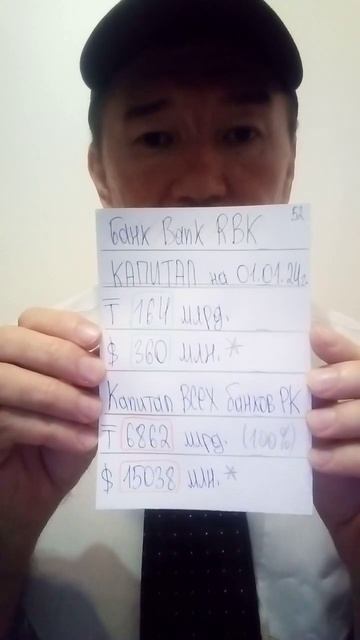 52
Банк Bank RBK
КАПИТАЛ на 01.01.24г.
₸ 164 млрд.
$ 360 млн. *
Капитал ВСЕХ банков РК
₸ 6862 млрд. (100%)
$ 15038 млн. *